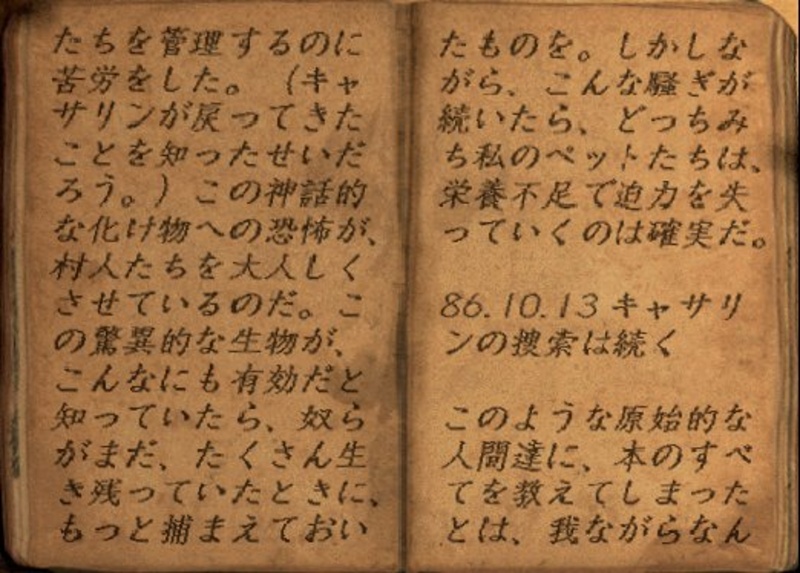 たちを管理するのに
苦労をした。（キャ
サリンが戻ってきた
ことを知ったせいだ
ろう。）この神話的
な化け物への恐怖が、
村人たちを大人しく
させているのだ。こ
の驚異的な生物が、
こんなにも有効だと
知っていたら、奴ら
がまだ、たくさん生
き残っていたときに、
もっと捕まえておい
たものを。しかしな
がら、こんな騒ぎが
続いたら、どっちみ
ち私のペットたちは、
栄養不足で迫力を失
っていくのは確実だ。
86.10.13 キャサリ
ンの捜索は続く
このような原始的な
人間達に、本のすべ
てを教えてしまった
とは、我ながらなん